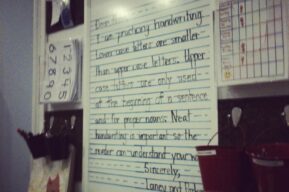 I am practicing handwriting.
Lower case letters are smaller
than upper case letters. Upper
case letters are only used
at the beginning of a sentence
and for proper nouns. Neat
handwriting is important so the
reader can understand your
Sincerely,
Laney and
1 2 3 4 5
6 7 8 9 0